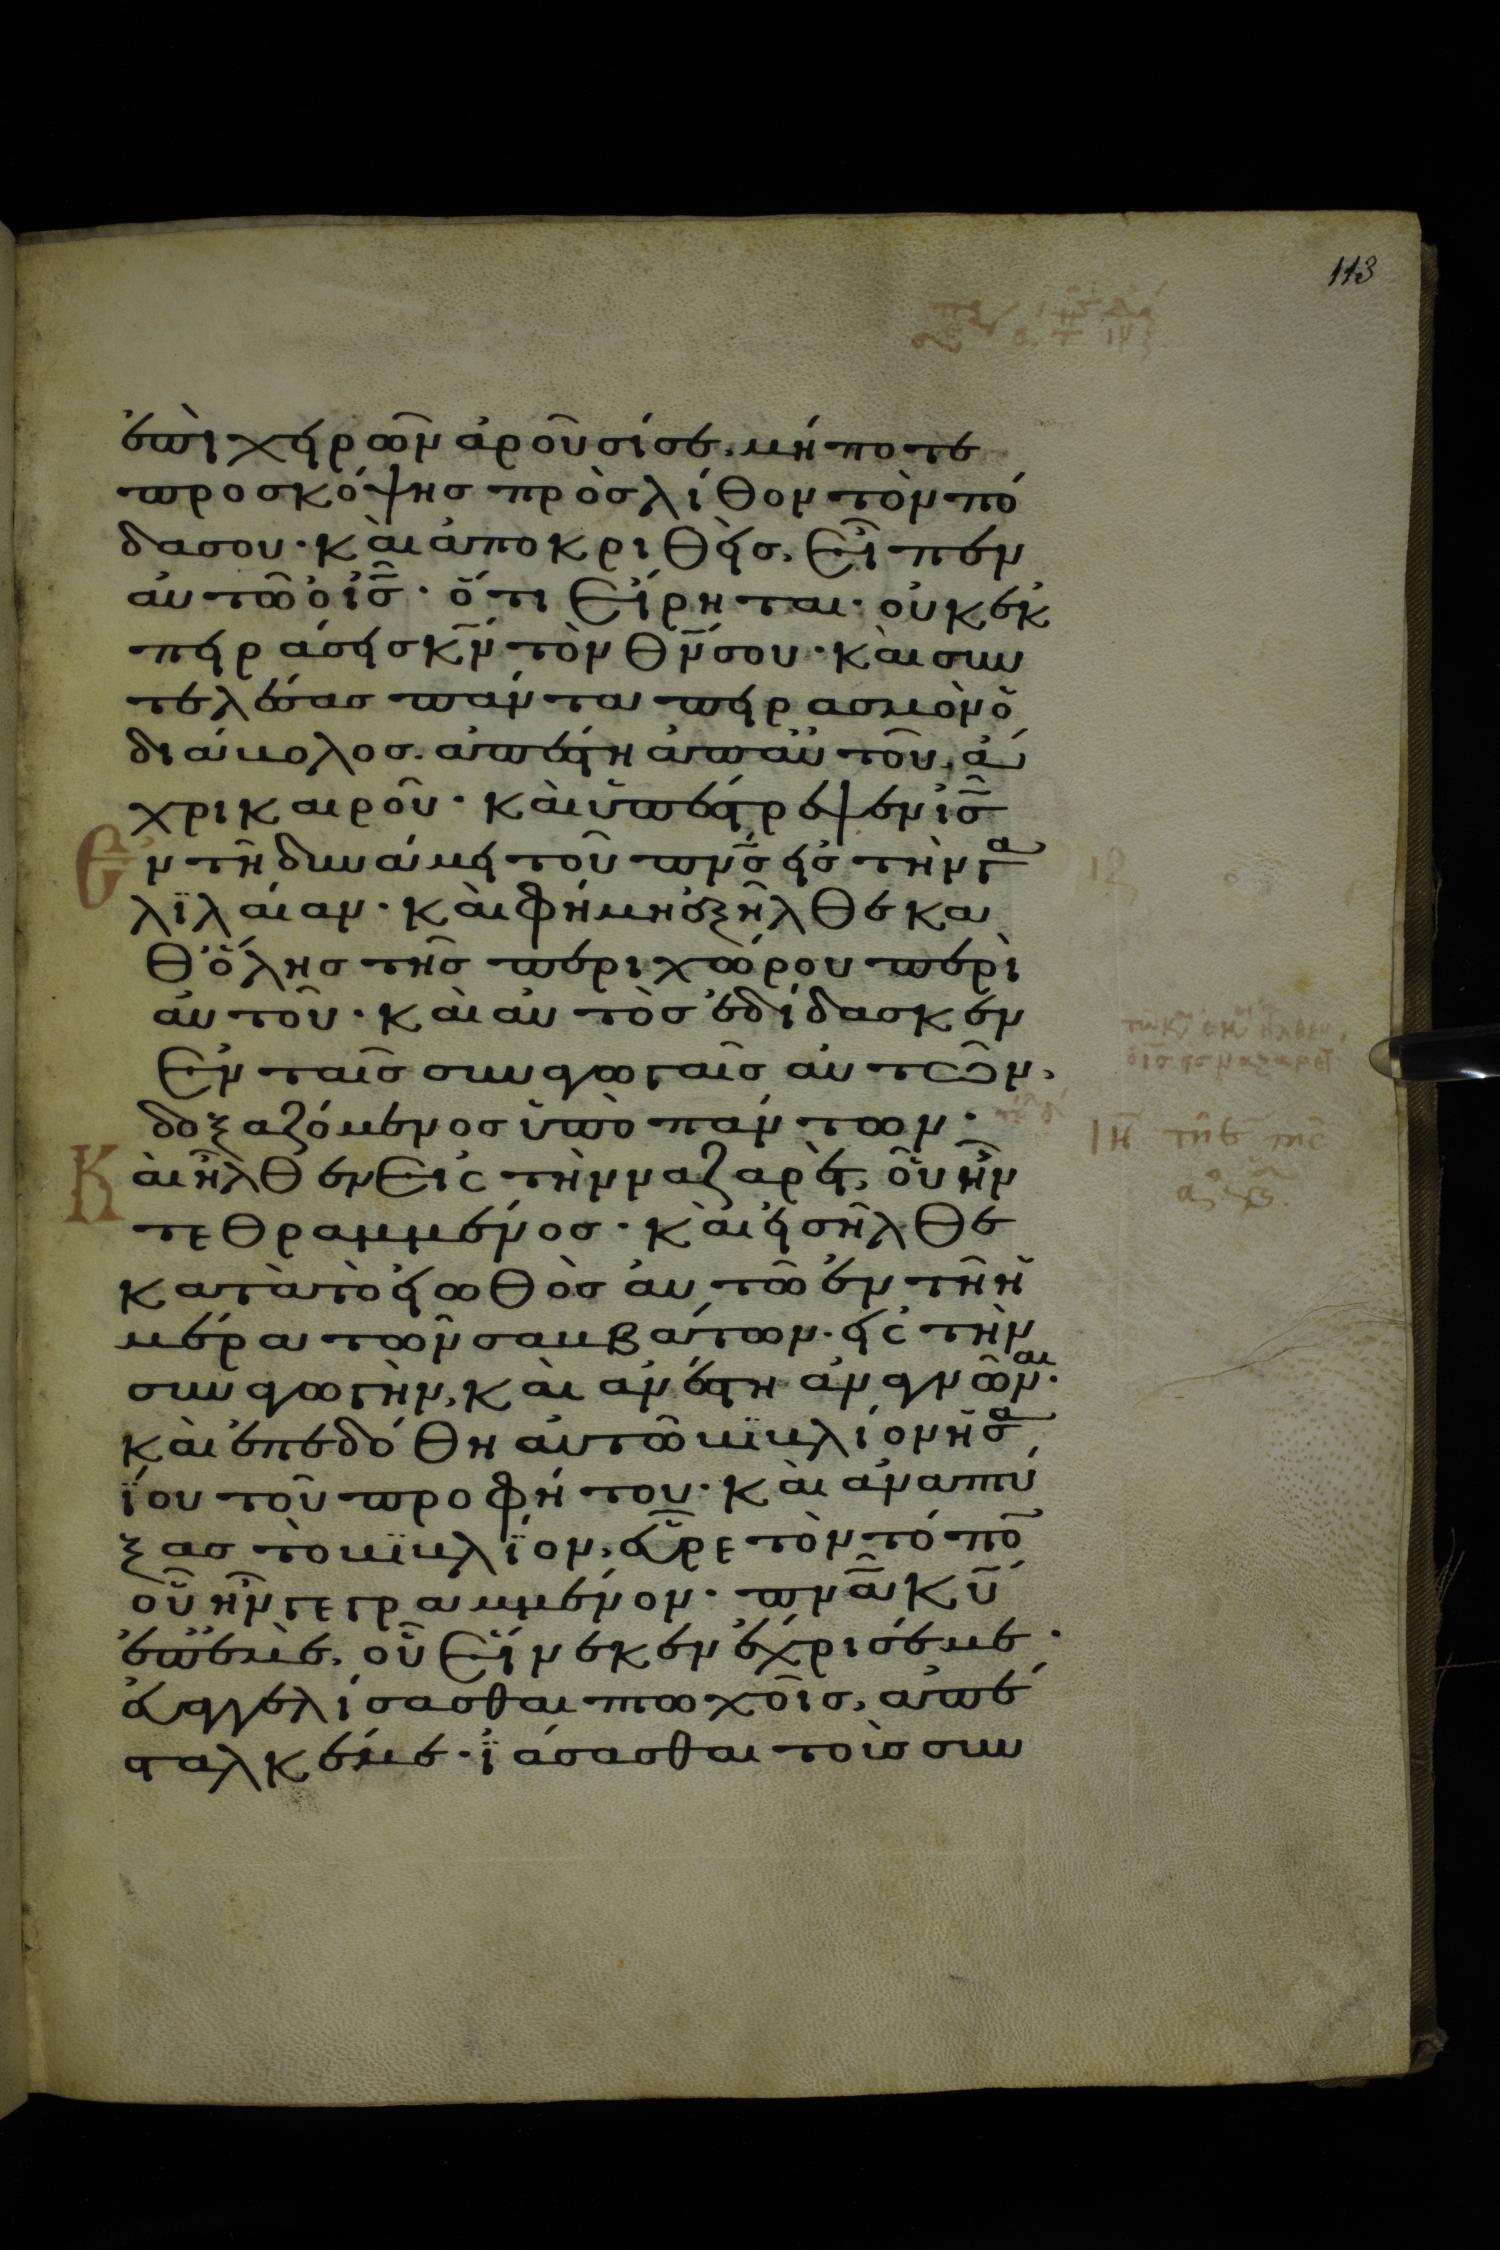 113
ἐπὶ χειρῶν ἀροῦσί σε, μήποτε
προσκόψης πρὸς λίθον τὸν πό
δα σου· καὶ ἀποκριθεὶς, εἶπεν
αὐτῶ ὁ ις̅· ὅτι εἴρηται· οὐκ ἐκ
πειράσεις κ̅ν τὸν θ̅ν σου· καὶ συν
τελέσας πάντα πειρασμὸν ὁ
διάβολος. ἀπέστη ἀπ' αὐτοῦ, ἄ
χρι καιροῦ· καὶ ὑπέστρεψεν ὁ ις̅
Ἐν τῆ δυνάμει τοῦ πν̅ς εἰς τὴν γα
λϊλαίαν· καὶ φήμη ἐξῆλθε κα
θ' ὅλης τῆς περιχώρου περὶ
αὐτοῦ· καὶ αὐτὸς ἐδίδασκεν
ἐν ταῖς συναγωγαῖς αὐτῶν,
δοξαζόμενος ὑπὸ πάντων·
Καὶ ἦλθεν εἰς τὴν ναζαρὲτ, οὗ ἦν
τεθραμμένος· καὶ εἰσῆλθε
κατὰ τὸ εἰωθὸς αὐτῶ ἐν τῆ ἡ
μέρα τῶν σαββάτων· εἰς τὴν
συναγωγὴν, καὶ ἀνέστη ἀναγνῶναι·
καὶ ἐπεδόθη αὐτῶ βϊβλίον ἡσα
ΐου τοῦ προφήτου· καὶ ἀναπτύ
ξας τὸ βϊβλΐον, εὗρε τὸν τόπο̅
οὗ ἦν γεγραμμένον· πν̅α κ̅υ
ἐπ' ἐμὲ, οὗ εἵνεκεν ἔχρισέ με·
εὐαγγελίσασθαι πτωχοῖς, ἀπέ
σταλκέ με· ἰάσασθαι τοὺς συν